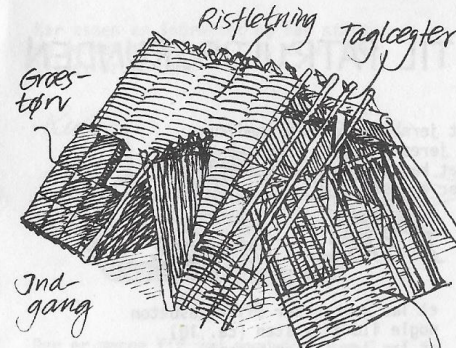 Risfletning
Taglægter
Græs-
tørv
Ind-
gang